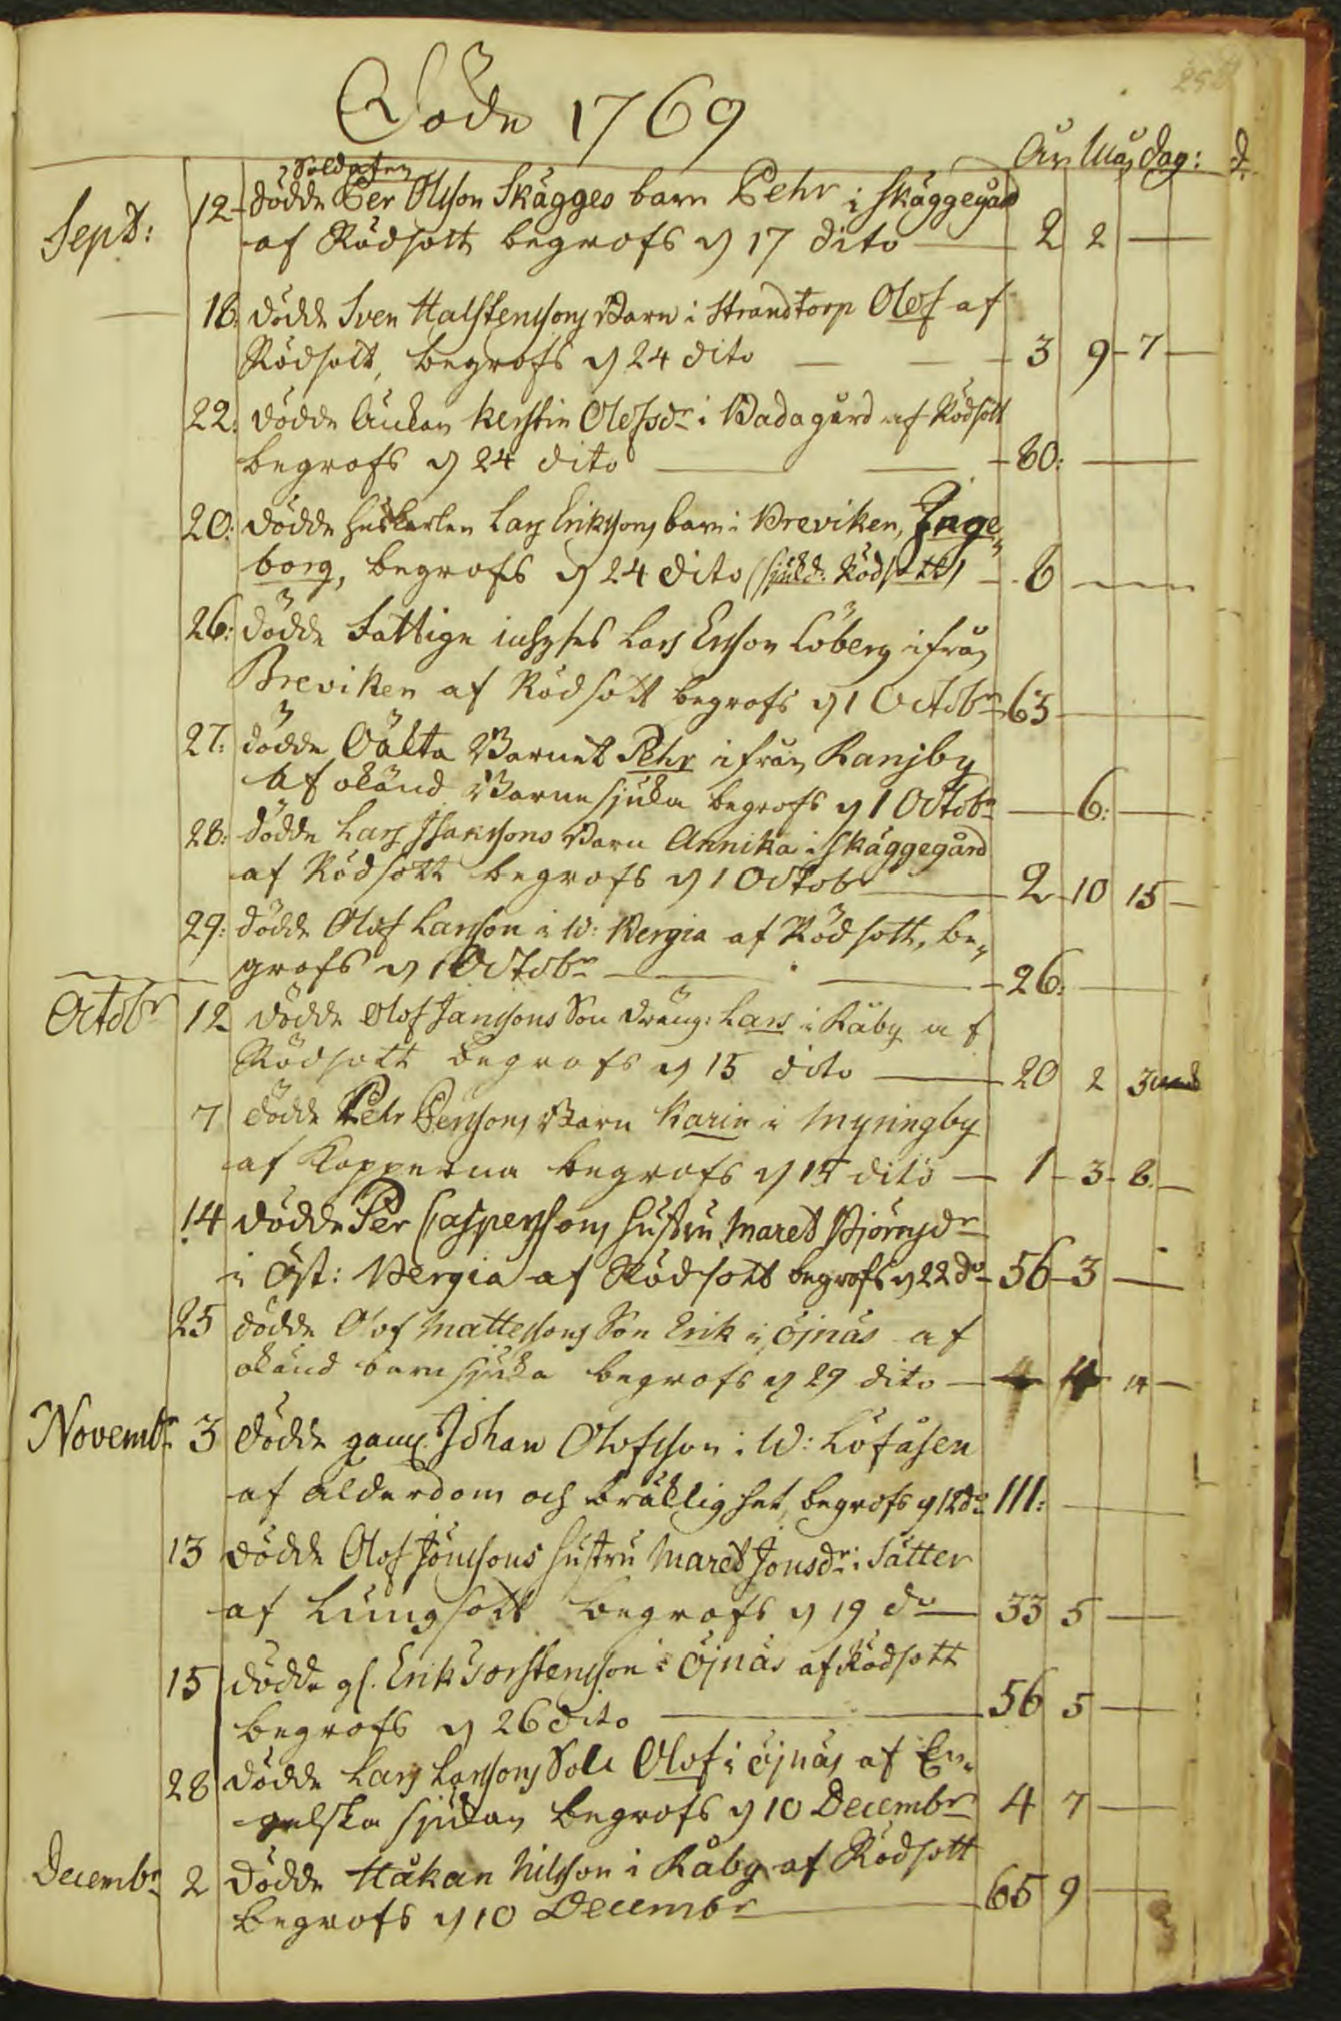 Döde 1769
År Mån dag:
Soldaten
Sept: 12 dödde Per Olsson Skägges barn Pehr i Skäggegård
af Rödsott begrofs d 17 dito 2 2
18 dödde Sven Halstenssons Barn i Strandtorp Olof af
Rödsott, begrofs d 24 dito 3 9 7
22: dödde Änkan Kerstin Olofsdr i Badagård af Rödsott
begrofs d 24 dito 80:
20: dödde Huskarlen Lars Erikssons barn i Breviken, Inge-
borg, begrofs d 24 dito (sjukd: Rödsott) 6
26: dödde Fattige inhyses Lars Ersson Löberg ifrån
Breviken af Rödsott begrofs d 1 Octobr 63
27: dödde Oäkta Barnet Pehr ifrån Ransby
af okänd Barnesjuka begrofs d 1 Octobr 6:
28: dödde Lars Isakssons Barn Annika i Skäggegård
af Rödsott begrofs d 1 Octobr 2 10 15
29: dödde Olof Larsson i W: Bergia af Rödsott, be-
grofs d 1 Octobr 26:
Octobr 12 dödde Olof Janssons Son dräng: Lars i Råby af
Rödsott begrofs d 15 dito 20 2 3
7 dödde Pehr Perssons Barn Karin i Myringby
af Kopporna begrofs d 15 dito 1 3 6
14 dödde Per Caspersons hustru Maret Björnsdr
i Öst: Bergia af Rödsott begrofs d 22 do 56 3
25 dödde Olof Mattessons Son Erik i Öjnäs af
okänd barnsjuka begrofs d 29 dito 4 14
Novembr 3 dödde gaml. Johan Olofsson i W: Löfåsen
af ålderdom och bräklighet, begrofs d 12 do 111:
13 dödde Olof Jönssons hustru Maret Jonsdr i Sätter
af Lungsott begrofs d 19 do 33 5
15 dödde gl. Erik Torstensson i Öjnäs af Rödsott
begrofs d 26 dito 56 5
28 dödde Lars Larssons Son Olof i Öjnäs af En-
gelska sjukan begrofs d 10 Decembr 4 7
Decembr 2 dödde Håkan Nilsson i Råby af Rödsott
begrofs d 10 Decembr 65 9